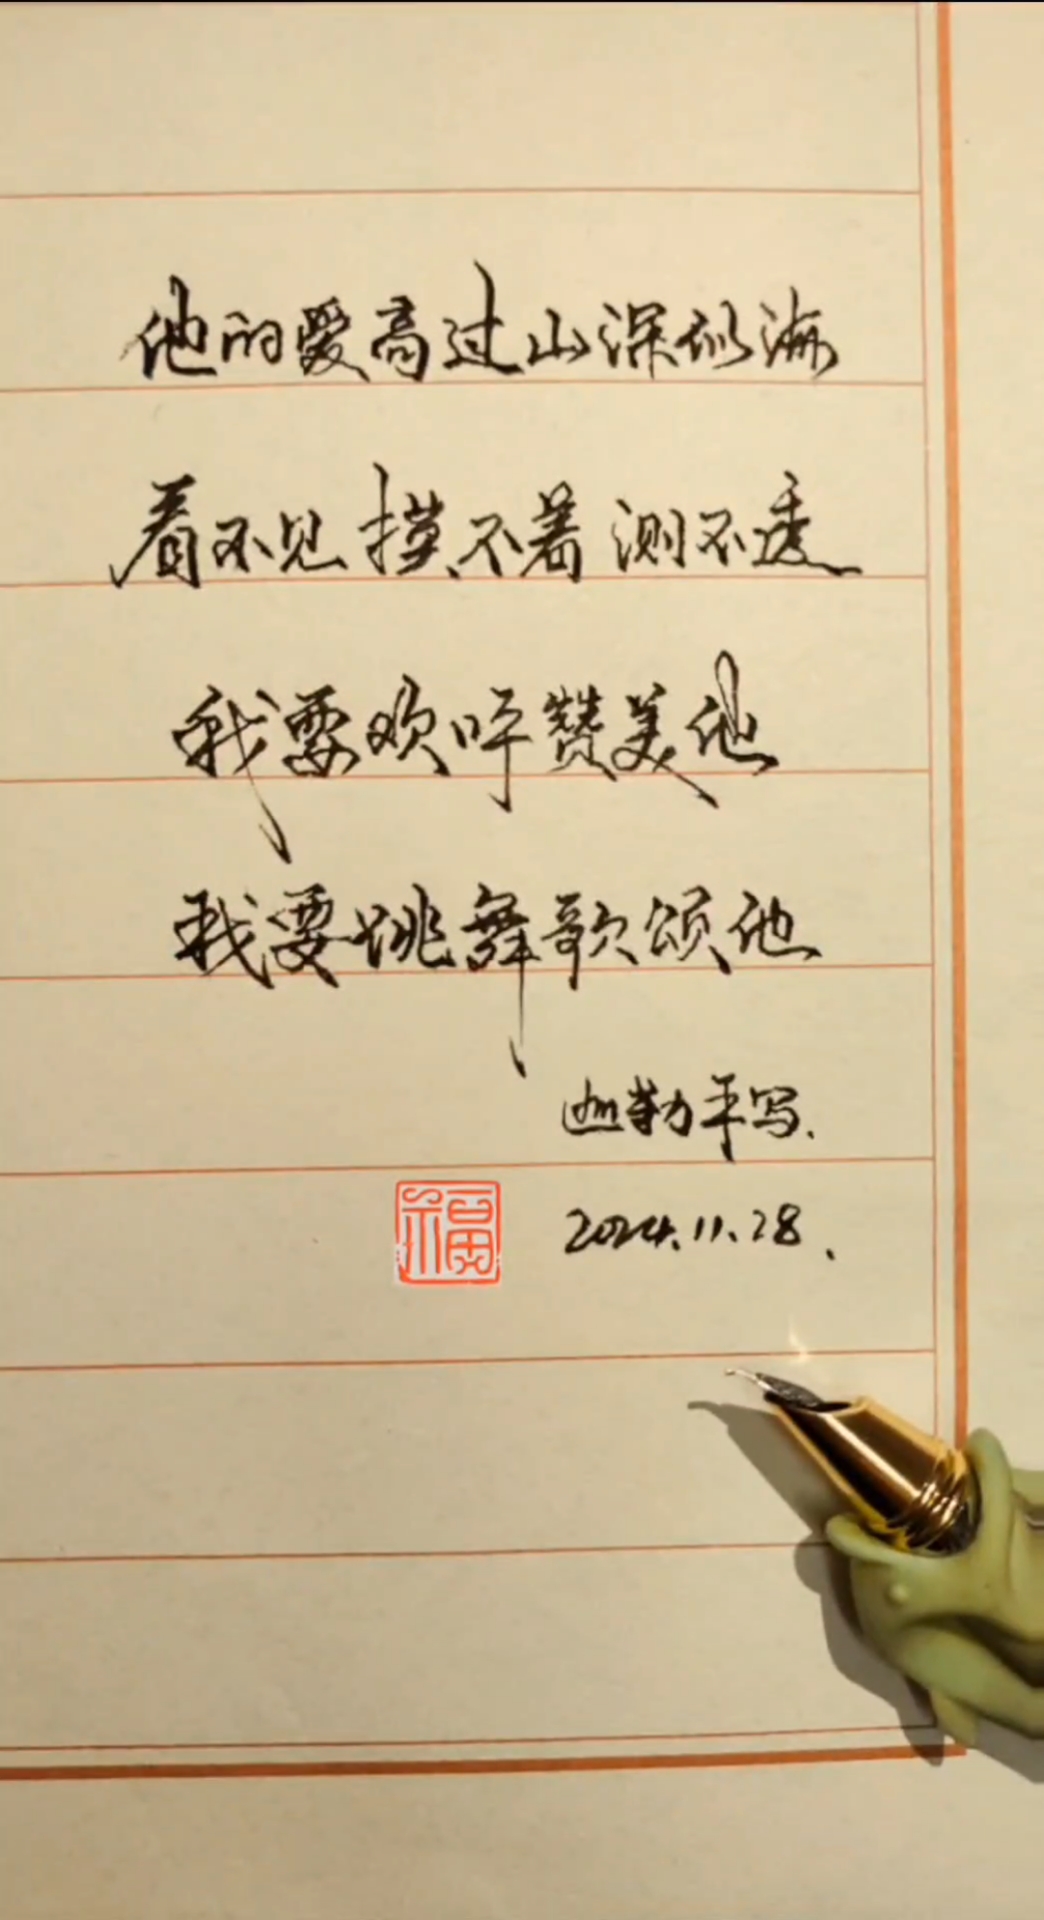 他的爱高过山深似海
看不见 摸不着 测不透
我要欢呼赞美他
我要跳舞歌颂他
迦勒平写.
2024.11.28.
福